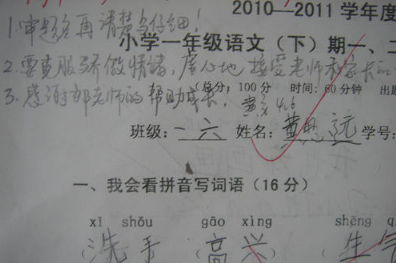 2010—2011 学年度
1.审题后再请楚点仔细!
小学一年级语文(下)期一、二
2.要克服骄傲情绪,虚心地接受老师和家长的
总分:100分 时间:60分钟 出题
3.感谢郭老师的帮助成长。
班级:一六 姓名:黄思远 学号:
一、我会看拼音写词语(16分)
xǐ shǒu gāo xìng shēng q
(洗手 (高兴 (生气